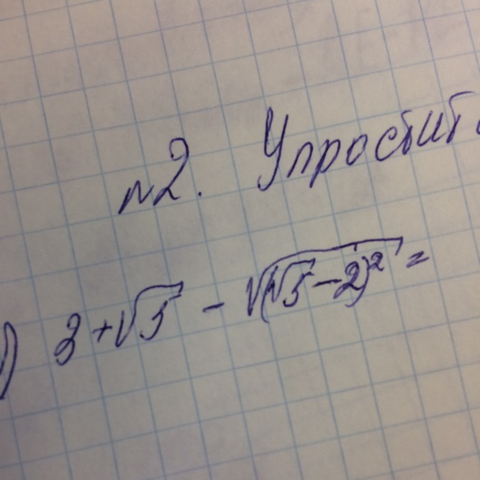 №2. Упростит
1) 3 + √5 - √(√5 - 2)² =